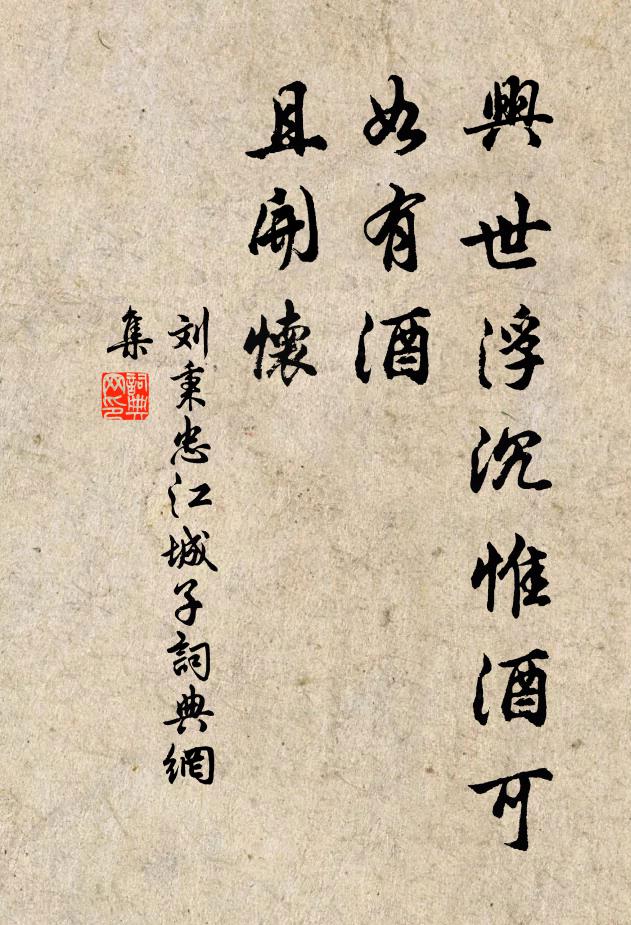 與世浮沉惟酒可
如有酒
且開懷
刘秉忠江城子詞典網
集
詞典
网印